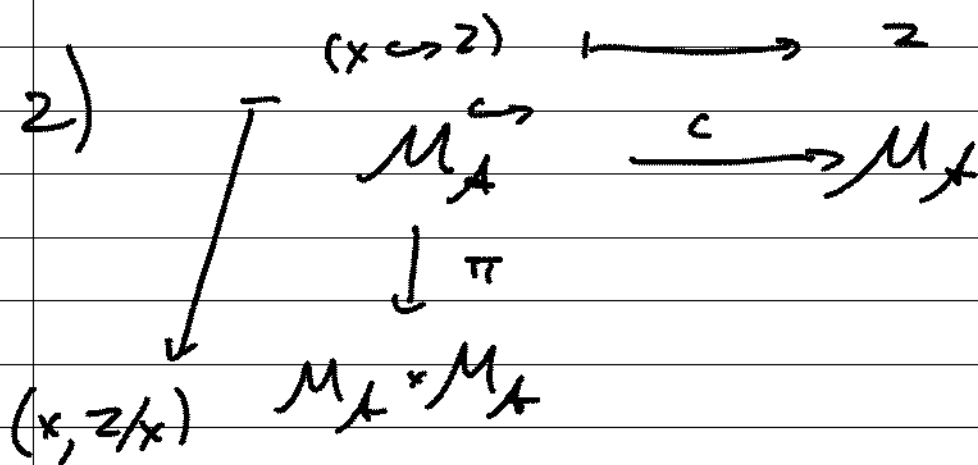 (x ↪ z) ⟼ z
2) M_A^↪ —c→ M_A
↓ π
(x, z/x) M_A × M_A